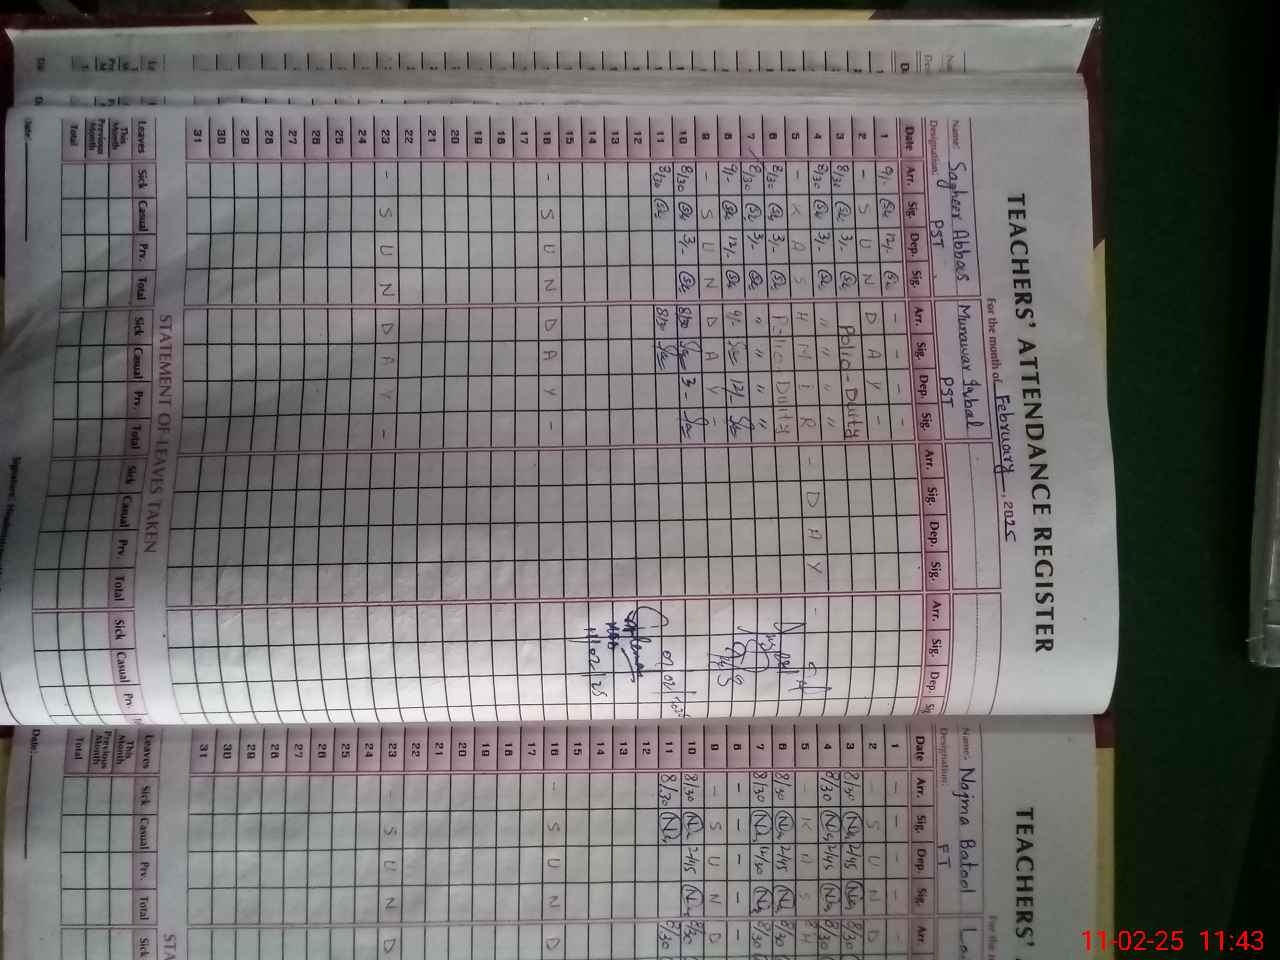 TEACHERS' ATTENDANCE REGISTER
For the month of February, 2025
Name: Sagheer Abbas Munawar Iqbal
Designation: PST PST
Date Arr. Sig. Dep. Sig. Arr. Sig. Dep. Sig. Arr. Sig. Dep. Sig. Arr. Sig. Dep. Sig
1 9/- 12/- - - - -
2 - S U N D A Y -
3 8/30 3/- Polio-Duity
4 8/30 3/- " " " "
5 - K A S H M I R - D A Y -
6 8/30 3/- Polio Duity
7 8/30 3/- " " " "
8 9/- 12/- 9/- 12/-
9 - S U N D A Y -
10 8/30 3/- 8/30 3-
11 8/30 8/30
12
13
14 11/02/25
15
16 - S U N D A Y -
17
18
19
20
21
22
23 - S U N D A Y -
24
25
26
27
28
29
30
31
STATEMENT OF LEAVES TAKEN
Leaves Sick Casual Prv. Total Sick Casual Prv. Total Sick Casual Prv. Total Sick Casual Prv.
This Month
Previous Month
Total
Date:
TEACHERS'
For the
Name: Najma Batool
Designation: PT
Date Arr. Sig. Dep. Sig. Arr.
1 - - - - -
2 - S U N D
3 8/30 2/45 8/30
4 8/30 2/45 8/30
5 - K A S H
6 8/30 2/45 8/30
7 8/30 12/30 8/30
8 - - - - -
9 - S U N D
10 8/30 2/45 8/30
11 8/30 8/30
12
13
14
15
16 - S U N D
17
18
19
20
21
22
23 - S U N D
24
25
26
27
28
29
30
31
STA
Leaves Sick Casual Prv. Total Sick
This Month
Previous Month
Total
Date:
11-02-25 11:43